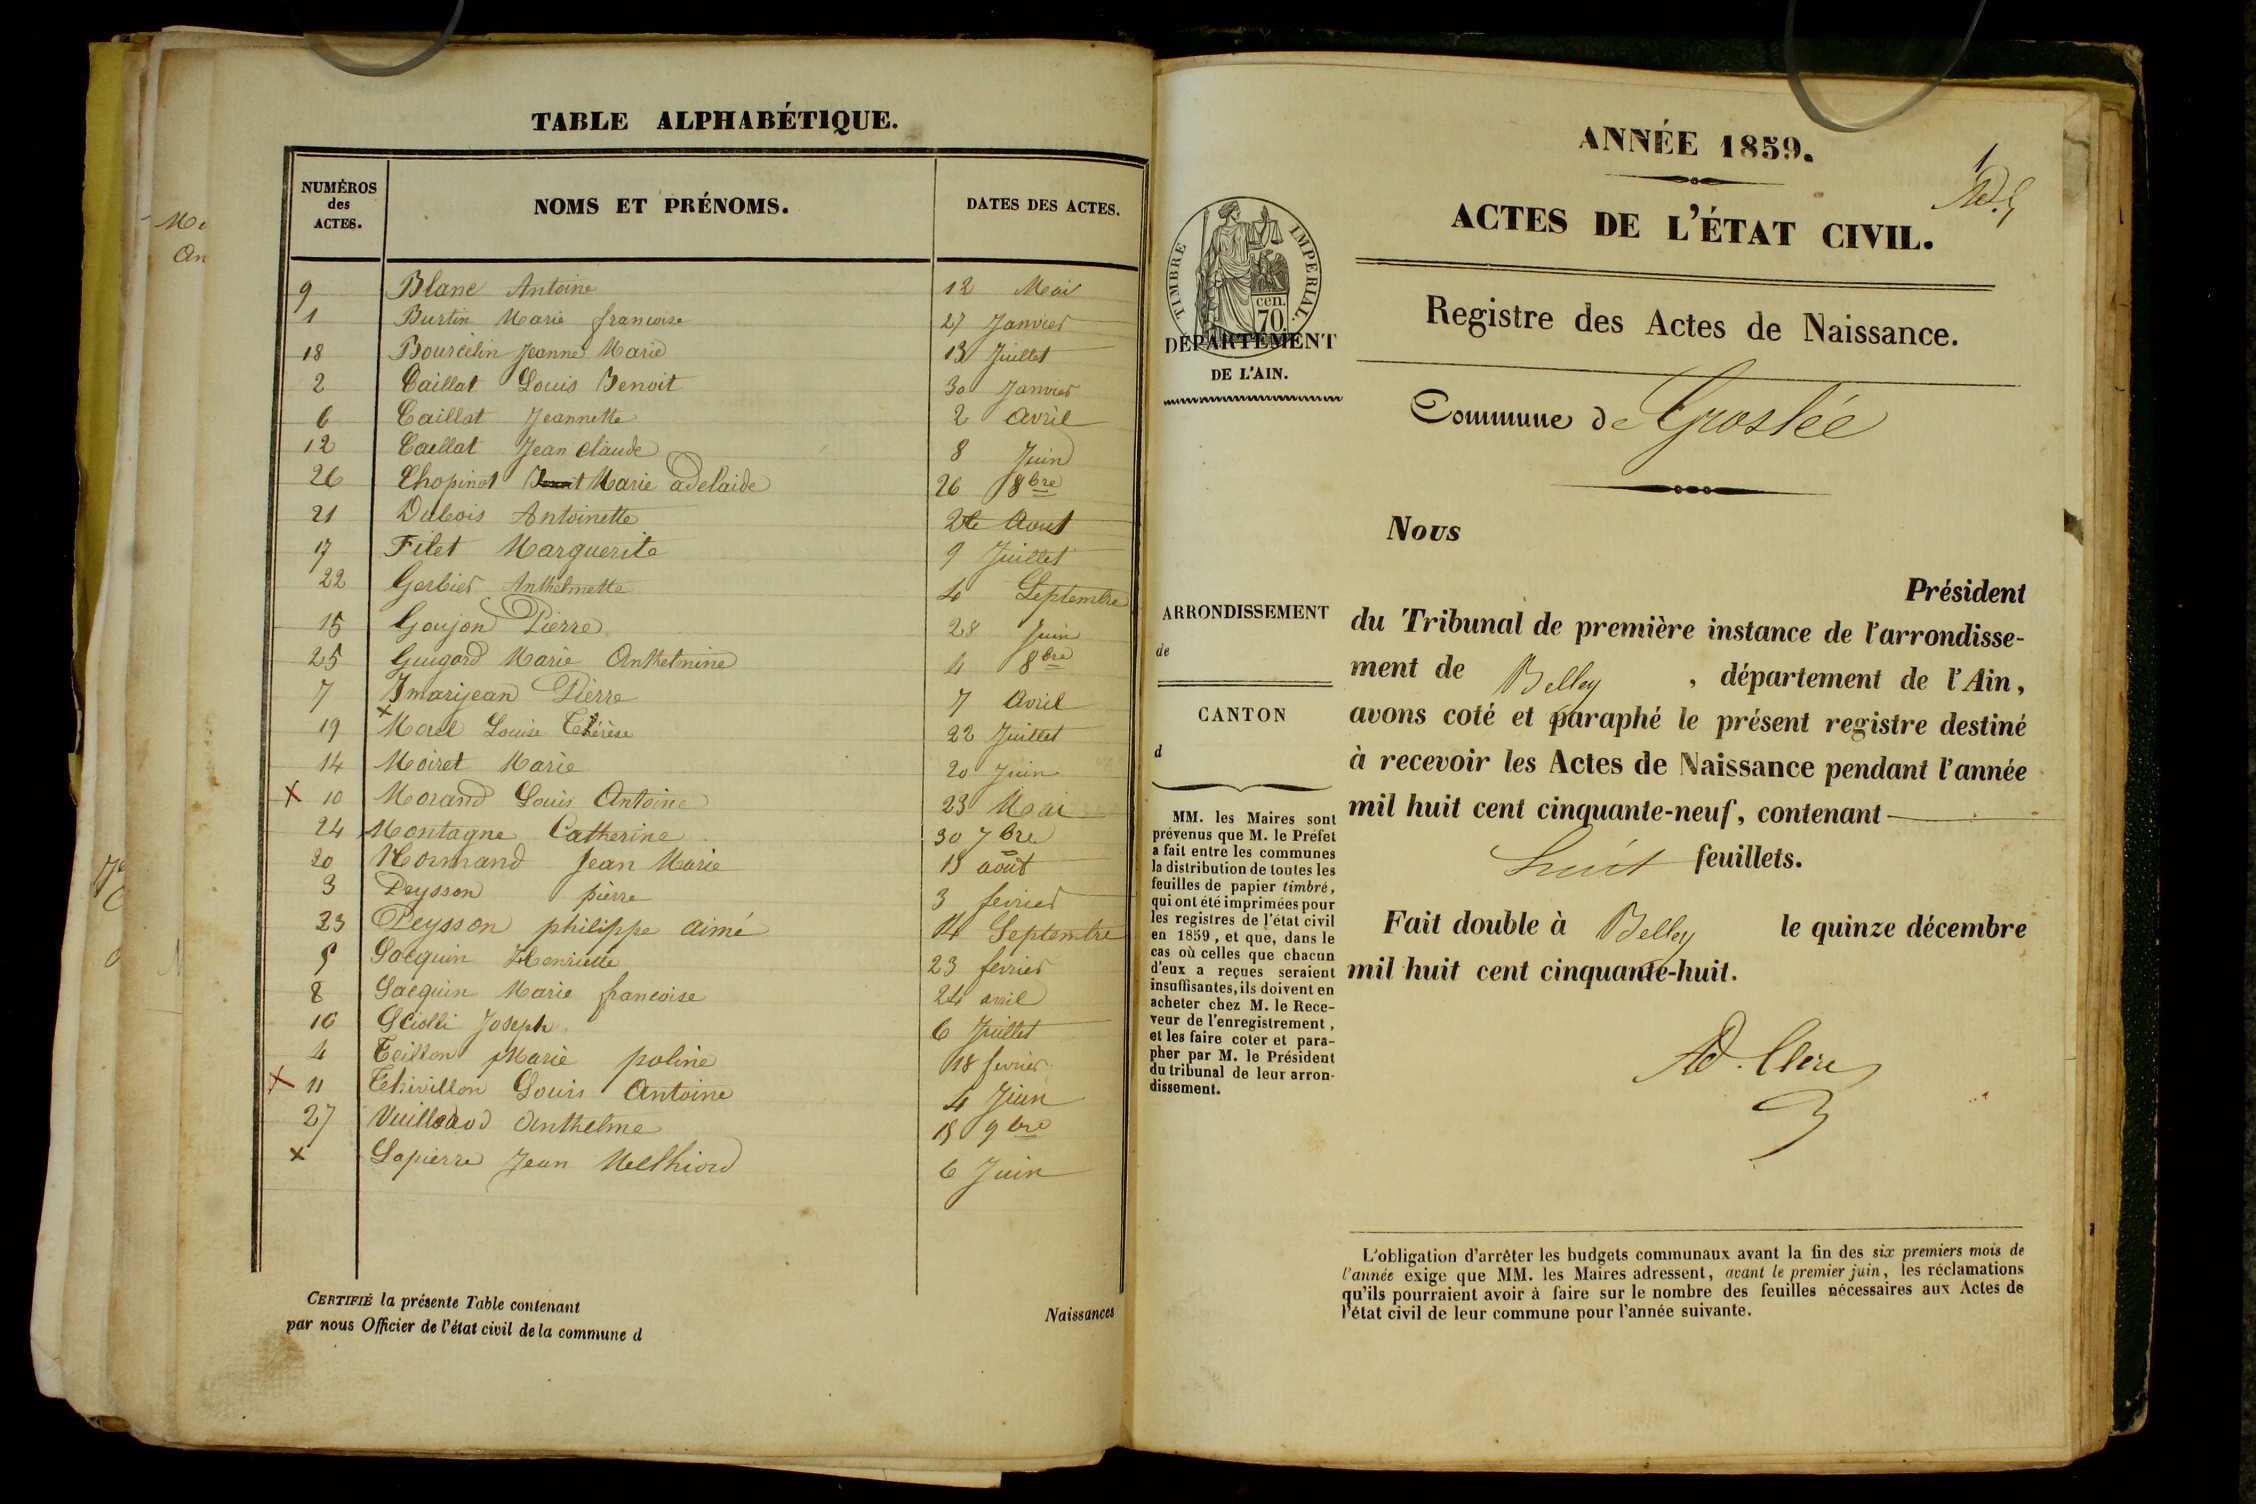 TABLE ALPHABÉTIQUE.
NUMÉROS des ACTES. NOMS ET PRÉNOMS. DATES DES ACTES.
9 Blanc Antoine 12 Mai
1 Burtin Marie francoise 27 Janvier
18 Bourcelin Jeanne Marie 13 Juillet
2 Caillat Louis Benoit 30 Janvier
6 Caillat Jeannette 2 avril
12 Caillat Jean Claude 8 Juin
26 Chopinot Marie adelaide 26 8bre
21 Dubois Antoinette Aout
17 Filet Marguerite 9 Juillet
22 Gerbier Anthelmette 4 Septembre
15 Goujon Pierre 28 Juin
25 Guigard Marie Anthelmine 4 8bre
7 Imarijean Pierre 7 avril
19 Morel Louise Thérèse 22 Juillet
14 Moiret Marie 20 Juin
x 10 Morand Louis Antoine 23 Mai
24 Montagne Catherine 30 7bre
20 Normand Jean Marie 15 août
3 Peysson pierre 3 fevrier
23 Peysson philippe aimé 14 Septembre
5 Sacquin Henriette 23 fevrier
8 Sacquin Marie francoise 24 avril
16 Sciolli Joseph 6 Juillet
4 Teillon Marie poline 18 fevrier
x 11 Thivillon Louis Antoine 4 Juin
27 Vuillerod Anthelme 15 9bre
x Lapierre Jean Melchiord 6 Juin
CERTIFIÉ la présente Table contenant Naissances
par nous Officier de l'état civil de la commune d
Me
An
1
ANNÉE 1859.
ACTES DE L'ÉTAT CIVIL.
Registre des Actes de Naissance.
Commune de Groslée
TIMBRE IMPERIAL.
cen. 70
DÉPARTEMENT
DE L'AIN.
ARRONDISSEMENT
de
CANTON
d
MM. les Maires sont
prévenus que M. le Préfet
a fait entre les communes
la distribution de toutes les
feuilles de papier timbré,
qui ont été imprimées pour
les registres de l'état civil
en 1859, et que, dans le
cas où celles que chacun
d'eux a reçues seraient
insuffisantes, ils doivent en
acheter chez M. le Rece-
veur de l'enregistrement,
et les faire coter et para-
pher par M. le Président
du tribunal de leur arron-
dissement.
Nous
Président
du Tribunal de première instance de l'arrondisse-
ment de Belley, département de l'Ain,
avons coté et paraphé le présent registre destiné
à recevoir les Actes de Naissance pendant l'année
mil huit cent cinquante-neuf, contenant
huit feuillets.
Fait double à Belley le quinze décembre
mil huit cent cinquante-huit.
Ad. Clerc
L'obligation d'arrêter les budgets communaux avant la fin des six premiers mois de
l'année exige que MM. les Maires adressent, avant le premier juin, les réclamations
qu'ils pourraient avoir à faire sur le nombre des feuilles nécessaires aux Actes de
l'état civil de leur commune pour l'année suivante.